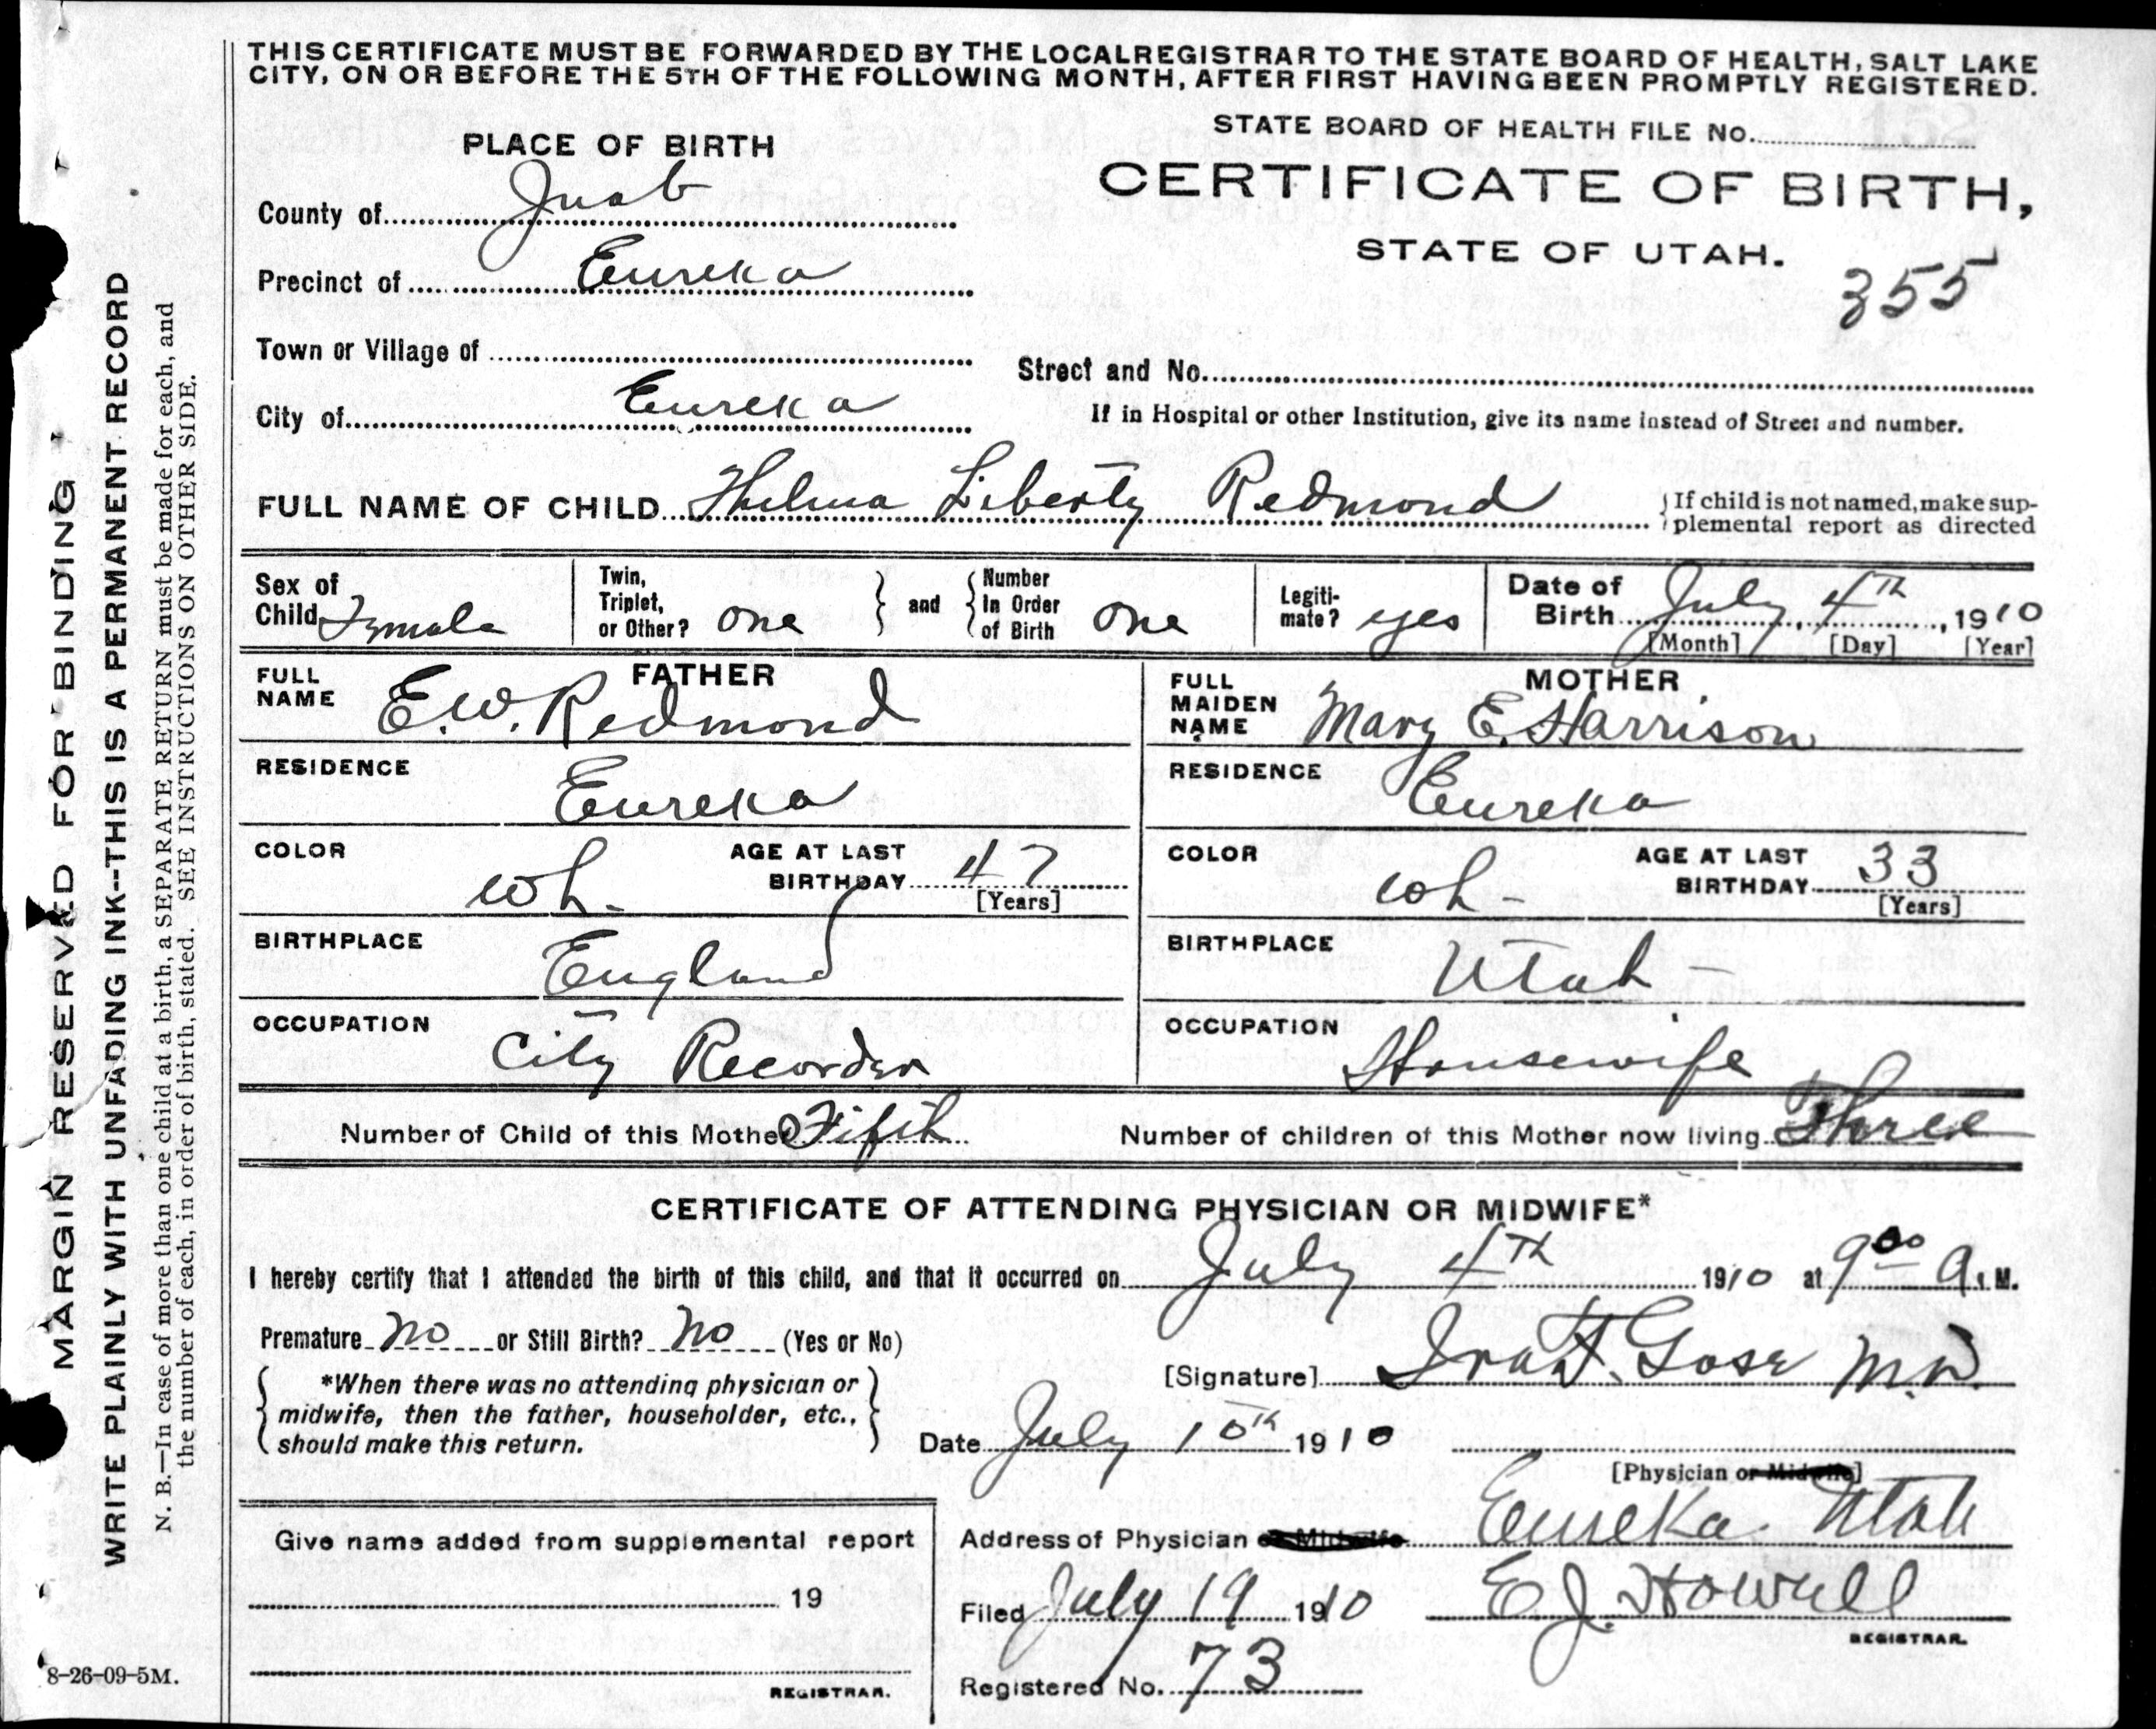 THIS CERTIFICATE MUST BE FORWARDED BY THE LOCAL REGISTRAR TO THE STATE BOARD OF HEALTH, SALT LAKE
CITY, ON OR BEFORE THE 5TH OF THE FOLLOWING MONTH, AFTER FIRST HAVING BEEN PROMPTLY REGISTERED.
STATE BOARD OF HEALTH FILE No.
PLACE OF BIRTH
CERTIFICATE OF BIRTH,
STATE OF UTAH.
355
County of Juab
Precinct of Eureka
Town or Village of
Street and No.
City of Eureka
If in Hospital or other Institution, give its name instead of Street and number.
FULL NAME OF CHILD Thelma Liberty Redmond
{If child is not named, make sup-
plemental report as directed
Sex of Child Female
Twin, Triplet, or Other? One } and { Number In Order of Birth One
Legiti-
mate? yes
Date of Birth July 4th, 1910
[Month] [Day] [Year]
FATHER
FULL NAME E.W. Redmond
RESIDENCE Eureka
COLOR wh-
AGE AT LAST BIRTHDAY 47
[Years]
BIRTHPLACE England
OCCUPATION City Recorder
MOTHER
FULL MAIDEN NAME Mary E. Harrison
RESIDENCE Eureka
COLOR wh-
AGE AT LAST BIRTHDAY 33
[Years]
BIRTHPLACE Utah-
OCCUPATION Housewife
Number of Child of this Mother Fifth
Number of children of this Mother now living Three
CERTIFICATE OF ATTENDING PHYSICIAN OR MIDWIFE*
I hereby certify that I attended the birth of this child, and that it occurred on July 4th 1910 at 9 00 A. M.
Premature no or Still Birth? no (Yes or No)
[Signature] Gose M.D.
*When there was no attending physician or
midwife, then the father, householder, etc.,
should make this return.
Date July 10th 1910
[Physician or Midwife]
Give name added from supplemental report
19
REGISTRAR.
Address of Physician or Midwife Eureka. Utah
Filed July 19 1910 E J. Howell
REGISTRAR.
Registered No. 73
MARGIN RESERVED FOR BINDING
WRITE PLAINLY WITH UNFADING INK--THIS IS A PERMANENT RECORD
N. B.—In case of more than one child at a birth, a SEPARATE RETURN must be made for each, and
the number of each, in order of birth, stated. SEE INSTRUCTIONS ON OTHER SIDE.
8-26-09-5M.